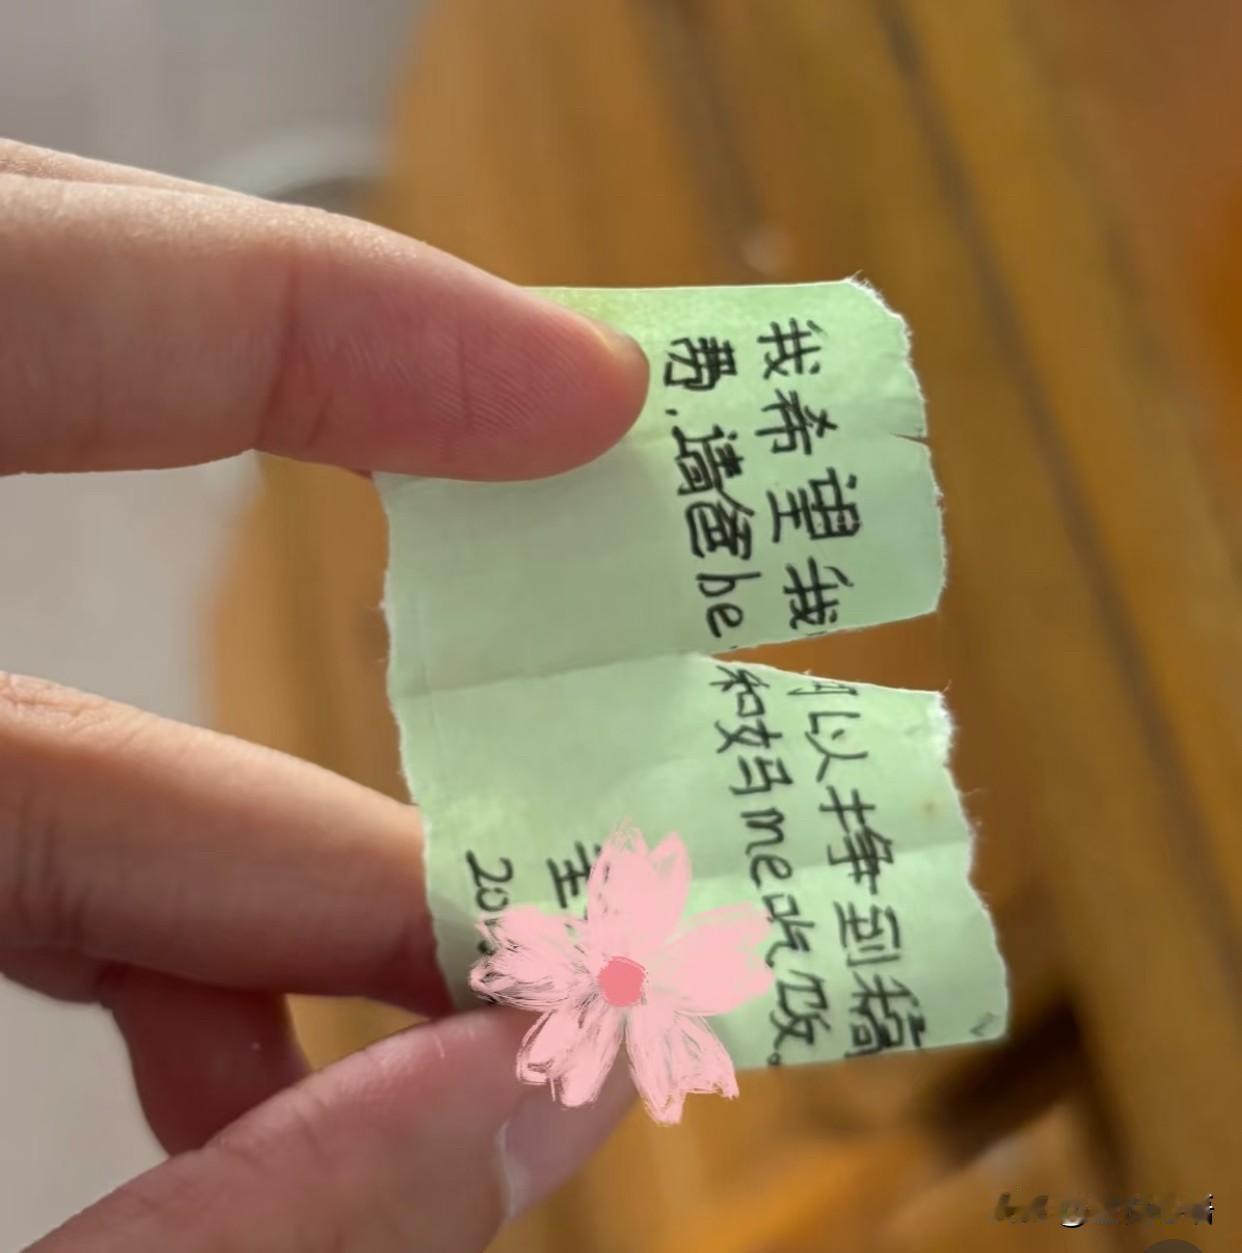 我希望我可以挣到稿
费.请爸be和妈me吃饭。
20